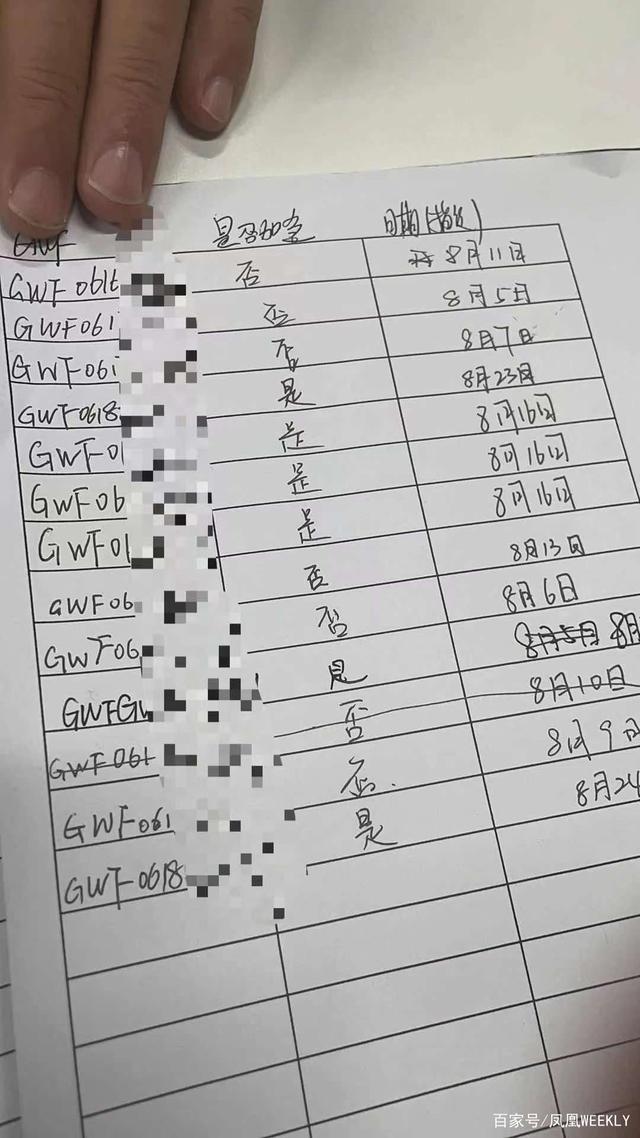 GWF 是否 日期
GWF 0616 否 8月11日
GWF061 否 8月5日
GWF061 否 8月7日
GWF0618 是 8月23日
GWF01 是 8月16日
GWF06 是 8月16日
GWF01 是 8月16日
GWF06 否 8月13日
GWF06 否 8月6日
GWFGW 是 8月5日 8月
GWF061 否 8月10日
GWF061 否. 8月9日
GWF0618 是 8月24
百家号/凤凰WEEKLY